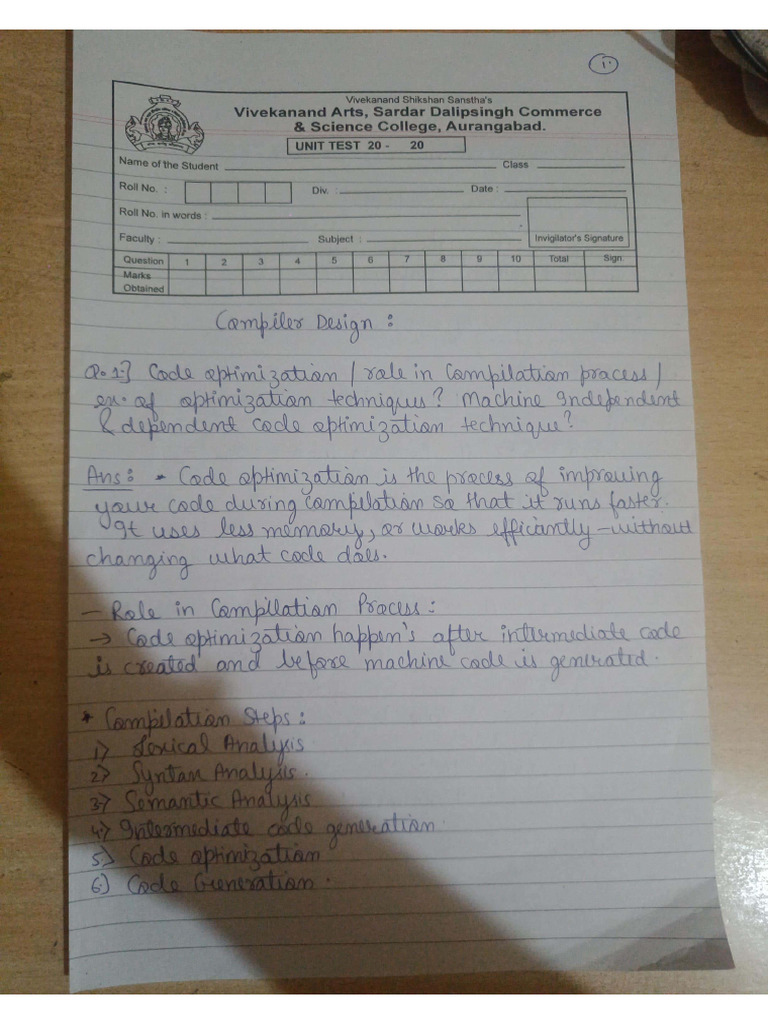 1.
Vivekanand Shikshan Sanstha's
Vivekanand Arts, Sardar Dalipsingh Commerce
& Science College, Aurangabad.
UNIT TEST 20 - 20
Name of the Student Class
Roll No. : Div. : Date :
Roll No. in words :
Faculty : Subject : Invigilator's Signature
Question 1 2 3 4 5 6 7 8 9 10 Total Sign.
Marks
Obtained
Compiler Design :
Q.1.] Code optimization / role in compilation process /
ex. of optimization techniques? Machine Independent
& dependent code optimization technique?
Ans : - Code optimization is the process of improving
your code during compilation so that it runs faster.
It uses less memory, or works efficantly - without
changing what code does.
- Role in Compilation Process :
→ Code optimization happen's after intermediate code
is created and before machine code is generated.
* Compilation Steps :
1) Lexical Analysis
2) Syntax Analysis.
3) Semantic Analysis
4) Intermediate code generation.
5) Code optimization
6) Code Generation.